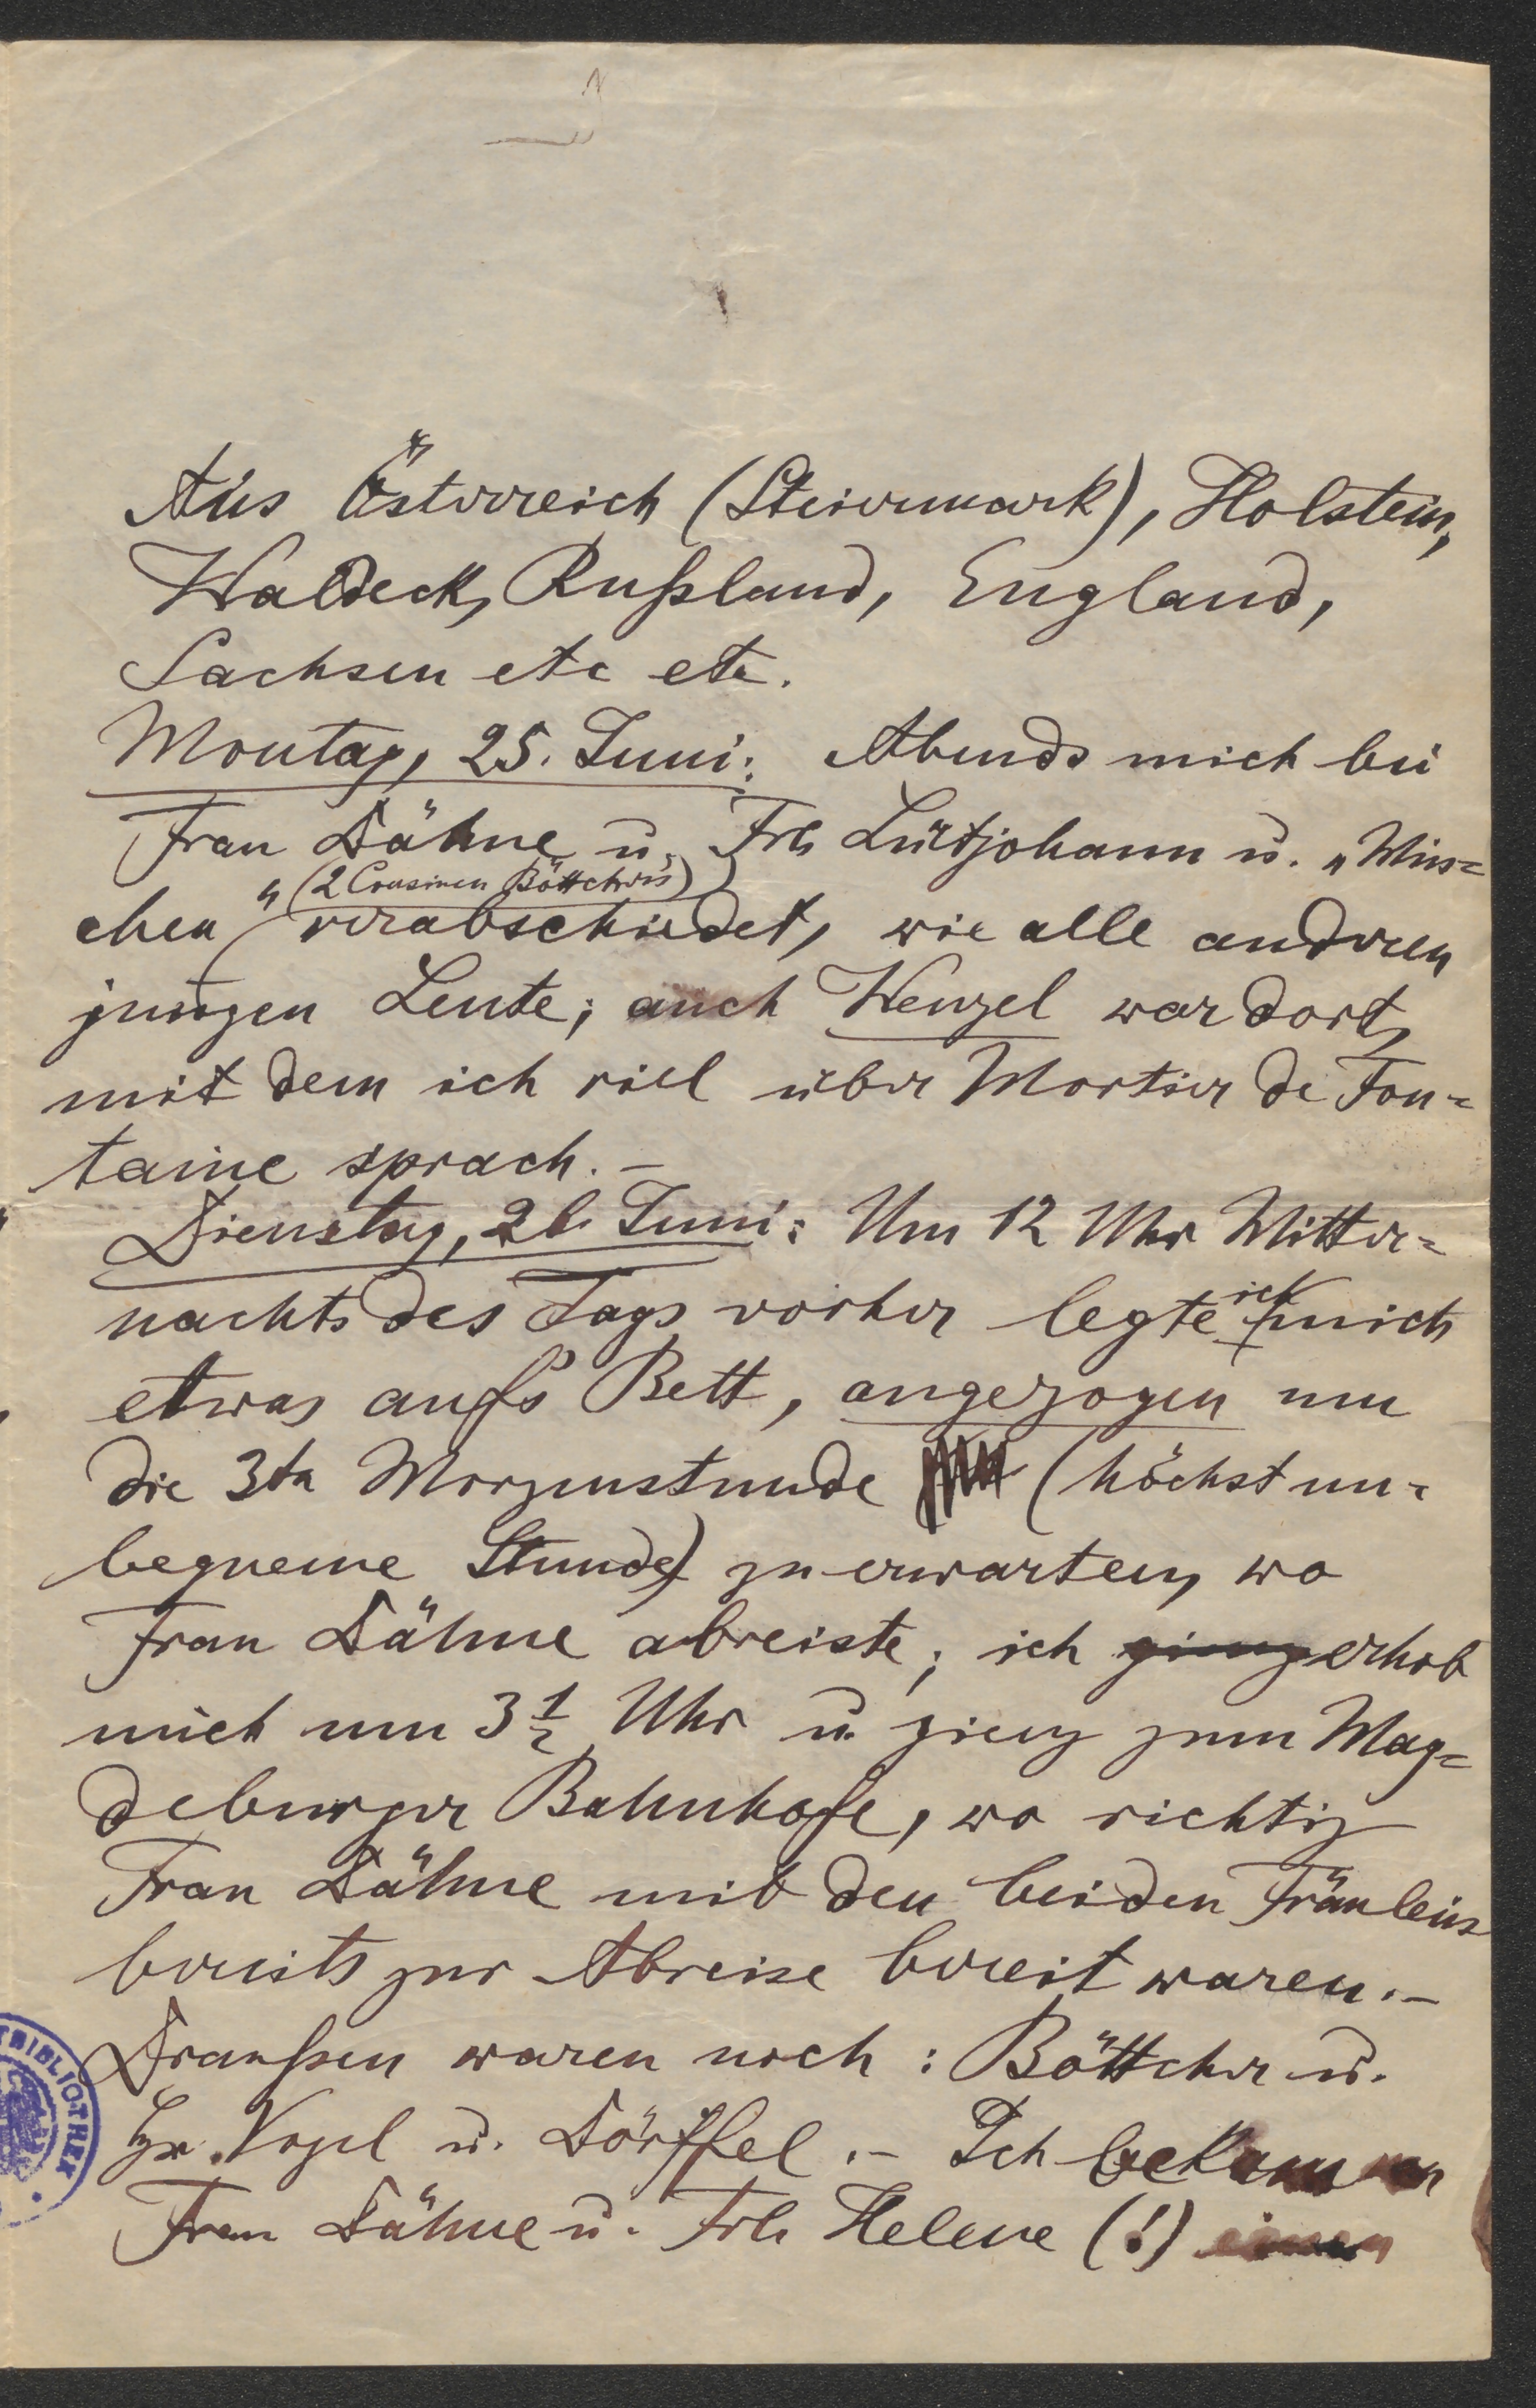 Aus Österreich (Steiermark), Holstein,
Waldeck, Rußland, England,
Sachsen etc etc.
Montag, 25. Juni: Abends mich bei
Frau Dähne u. Frl. Lütjohann u. „Mins=
(2 Cousinen Böttcher's)
chen" verabschiedet, wie alle anderen
jungen Leute; auch Wenzel war dort,
mit dem ich viel über Mortier de Fon=
taine sprach. –
Dienstag, 26. Juni: Um 12 Uhr Mitter=
nachts des Tags vorher legte ich mich
etwas aufs Bett, angezogen um
die 3te Morgenstunde (höchst un=
bequeme Stunde) zu erwarten, wo
Frau Dähne abreiste; ich gieng erhob
mich um 3 1/2 Uhr u. gieng zum Mag=
deburger Bahnhofe, wo richtig
Frau Dähne mit den beiden Fräuleins
bereits zur Abreise bereit waren. –
Draußen waren noch: Böttcher u.
Hr. Vogel u. Dörffel. – Ich bekam von
Frau Dähne u. Frl. Helene (!) einen
BIBLIOTHEK